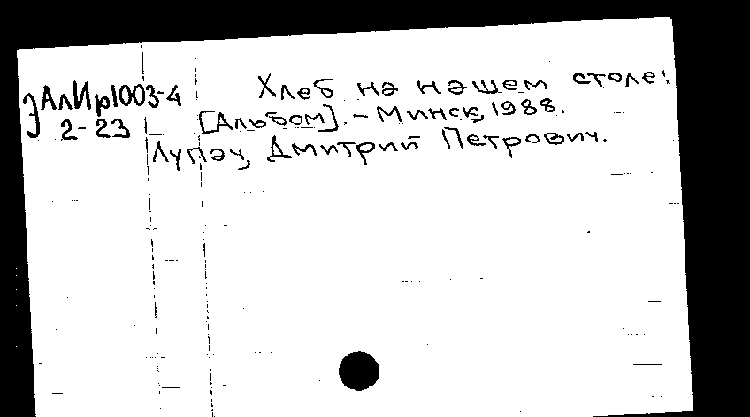 ЭАлИр1003-4
2-23
Хлеб на нашем столе:
[Альбом]. - Минск, 1988.
Лупач, Дмитрий Петрович.